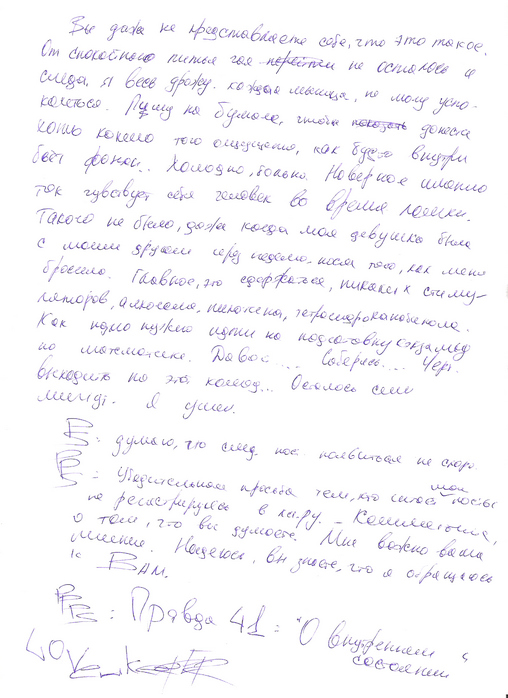 Вы даже не представляете себе, что это такое.
От спокойного питья чая перейти не осталось и
следа, я весь дрожу. каждая мышца, не могу успо-
коиться. Пишу на бумаге, чтобы показать донести
каково того ощущение, как будто внутри
бьёт фонтан.. Холодно, больно. Наверное именно
так чувствует себя человек во время ломки.
Такого не было, даже когда моя девушка была
с моим другом через неделю после того, как меня
бросила. Главное, это сдержаться, никаких стиму-
ляторов, алкоголя, никотина, тетрагидроканабинола.
Как идно нужно идти на подготовку к экзамену
по математике. Давай.... соберись.... Черт.
выходить на этот холод... Осталось семь
минут. Я ушел.
P.S: думаю, что след. пост появиться не скоро.
P.P.S: Убедительная просьба тем, кто читает мои посты
не регистрируясь в лиру. - Комментите,
о том, что вы думаете. Мне важно ваше
мнение. Надеюсь, вы знаете, что я обращаюсь
к ВАМ.
P.P.P.S: Правда 41: "О внутреннем
состоянии"